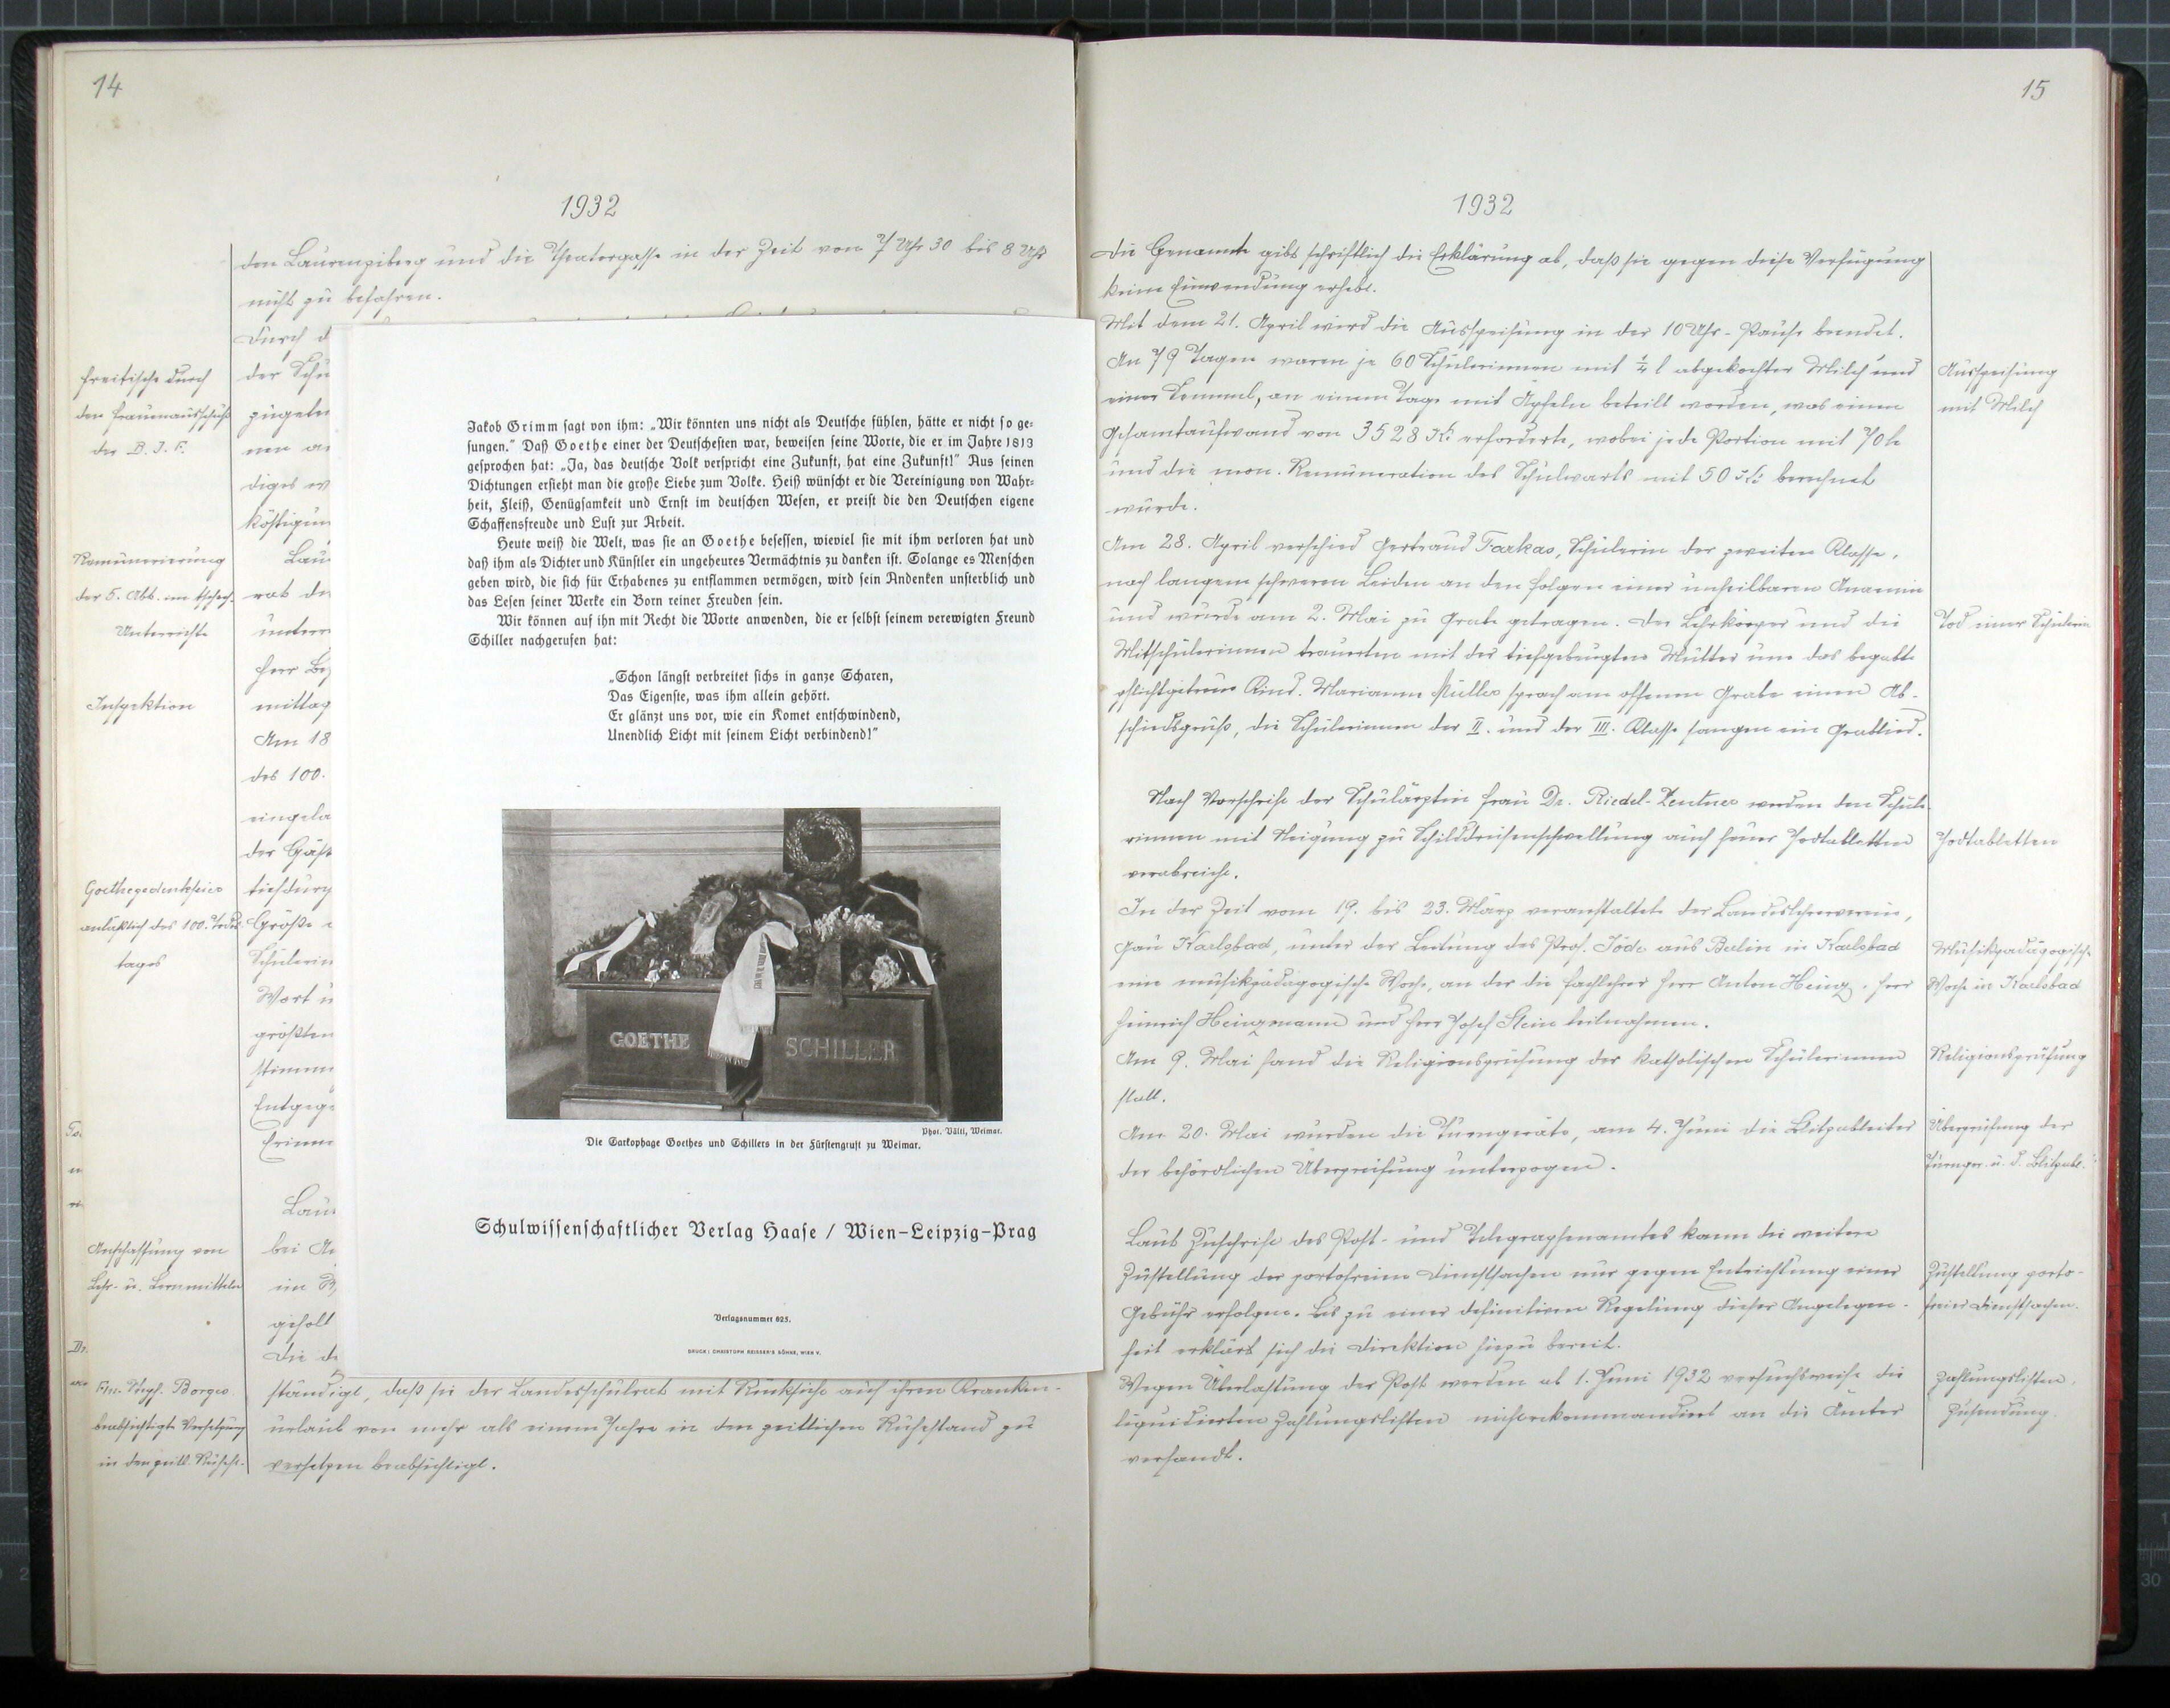 14
1932
den Laurenziberg und die Theatergasse in der Zeit von 7 Uhr 30 bis 8 Uhr
nicht zu befahren.
Durch d
Freitische durch
den Frauenausschuß
der B. J. F.
der Schü
zugeteil
nen an
diges w
köstigun
Remunerierung
der 5. Abt. im tschech.
Unterrichte
Lau
rat de
unterr
Herr Be
Inspektion
mittag
Am 18
des 100.
eingela
der Gäst
Goethegedenkfeier
anläßlich des 100. Todes-
tages
tiefdurch
Größe
Schülerin
Wort u
größten
stimm
Entgege
Erinn
Lau
Anschaffung von
Lehr- u. Lernmitteln
bei An
im
geholt
Die d
Borges
beabsichtigte Versetzung
in den zeitl. Ruhest.
ständigt, daß sie der Landesschulrat mit Rücksicht auf ihren Kranken-
urlaub von mehr als einem Jahre in den zeitlichen Ruhestand zu
versetzen beabsichtigt.
Jakob Grimm sagt von ihm: „Wir könnten uns nicht als Deutsche fühlen, hätte er nicht so ge-
sungen.“ Daß Goethe einer der Deutschesten war, beweisen seine Worte, die er im Jahre 1813
gesprochen hat: „Ja, das deutsche Volk verspricht eine Zukunft, hat eine Zukunft!“ Aus seinen
Dichtungen ersieht man die große Liebe zum Volke. Heiß wünscht er die Vereinigung von Wahr-
heit, Fleiß, Genügsamkeit und Ernst im deutschen Wesen, er preist die den Deutschen eigene
Schaffensfreude und Lust zur Arbeit.
Heute weiß die Welt, was sie an Goethe besessen, wieviel sie mit ihm verloren hat und
daß ihm als Dichter und Künstler ein ungeheures Vermächtnis zu danken ist. Solange es Menschen
geben wird, die sich für Erhabenes zu entflammen vermögen, wird sein Andenken unsterblich und
das Lesen seiner Werke ein Born reiner Freuden sein.
Wir können auf ihn mit Recht die Worte anwenden, die er selbst seinem verewigten Freund
Schiller nachgerufen hat:
„Schon längst verbreitet sichs in ganze Scharen,
Das Eigenste, was ihm allein gehört.
Er glänzt uns vor, wie ein Komet entschwindend,
Unendlich Licht mit seinem Licht verbindend!“
GOETHE
SCHILLER
Phot. Välti, Weimar.
Die Sarkophage Goethes und Schillers in der Fürstengruft zu Weimar.
Schulwissenschaftlicher Verlag Haase / Wien-Leipzig-Prag
Verlagsnummer 925.
DRUCK: CHRISTOPH REISSER'S SÖHNE, WIEN V.
15
1932
Die Genannte gibt schriftlich die Erklärung ab, daß sie gegen diese Verfügung
keine Einwendung erhebe.
Mit dem 21. April wird die Ausspeisung in der 10 Uhr-Pause beendet.
An 79 Tagen waren je 60 Schülerinnen mit ¼ l abgekochter Milch und
einer Semmel, an einem Tage mit Äpfeln beteilt worden, was einen
Gesamtaufwand von 3528 Kč erforderte, wobei jede Portion mit 70 h
und die mon. Remuneration des Schulwarts mit 50 Kč berechnet
wurde.
Ausspeisung
mit Milch
Am 28. April verschied Gertraud Farkas, Schülerin der zweiten Klasse,
nach langem schweren Leiden an den Folgen einer unheilbaren Anaemie
und wurde am 2. Mai zu Grabe getragen. Der Lehrkörper und die
Mitschülerinnen trauerten mit der tiefgebeugten Mutter um das begabte
pflichtgetreue Kind. Marianne Müller sprach am offenen Grabe einen Ab-
schiedsgruß, die Schülerinnen der II. und der III. Klasse sangen ein Grablied.
Tod einer Schülerin
Nach Vorschrift der Schulärztin Frau Dr. Riedel-Zentner werden den Schüle-
rinnen mit Neigung zu Schilddrüsenschwellung auch heuer Jodtabletten
verabreicht.
Jodtabletten
In der Zeit vom 19. bis 23. März veranstaltete der Landeslehrerverein,
Gau Karlsbad, unter der Leitung des Prof. Jöde aus Berlin in Karlsbad
eine musikpädagogische Woche, an der die Fachlehrer Herr Anton Heinz, Herr
Heinrich Heinzmann und Herr Josef Stein teilnahmen.
Musikpädagogische
Woche in Karlsbad
Am 9. Mai fand die Religionsprüfung der katholischen Schülerinnen
statt.
Religionsprüfung
Am 20. Mai wurden die Turngeräte, am 4. Juni die Blitzableiter
der behördlichen Überprüfung unterzogen.
Überprüfung der
Turnger. u. d. Blitzabl.
Laut Zuschrift des Post- und Telegraphenamtes kann die weitere
Zustellung der portofreien Dienstsachen nur gegen Entrichtung einer
Gebühr erfolgen. Bis zu einer definitiven Regelung dieser Angelegen-
heit erklärt sich die Direktion hiezu bereit.
Zustellung porto-
freier Dienstsachen.
Wegen Überlastung der Post werden ab 1. Juni 1932 versuchsweise die
liquidierten Zahlungslisten nichtrekommandiert an die Ämter
versandt.
Zahlungslisten,
Zusendung.